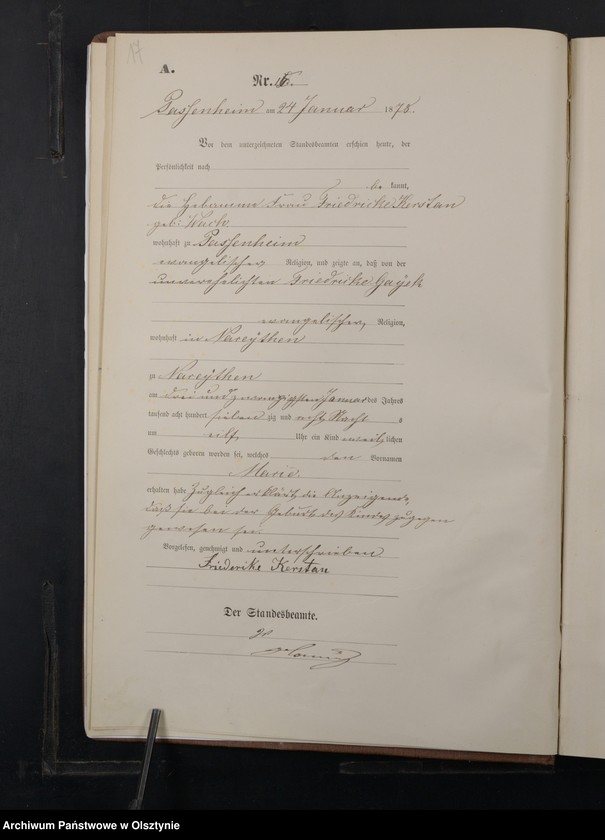 17
A.
Nr. 16.
Passenheim am 24 Januar 1878.
Von dem unterzeichneten Standesbeamten erschien heute, der
Persönlichkeit nach
be kannt,
die Hebamme Frau Friedricke Kerstan
geb:
wohnhaft zu Passenheim
evangelischer Religion, und zeigte an, daß von der
unverehelichten Friedricke Gayck
evangelischer, Religion,
wohnhaft in Nareythen
zu Nareythen
am drei und zwanzigsten Januar des Jahres
tausend acht hundert sieben zig und acht Nachts
um eilf, Uhr ein Kind weiblichen
Geschlechts geboren worden sei, welches den Vornamen
Marie.
erhalten habe. Zugleich erklärte die Anzeigende,
daß sie bei der Geburt des Kindes zugegen
gewesen sei.
Vorgelesen, genehmigt und unterschrieben
Friederike Kerstan
Der Standesbeamte.
Archiwum Państwowe w Olsztynie